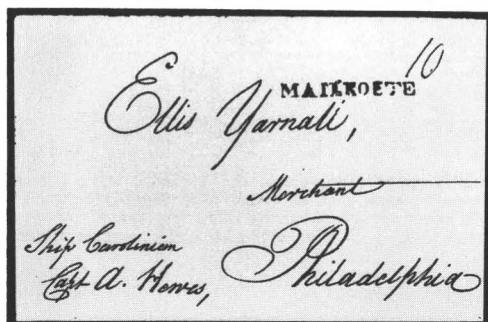 10
MAILROUTE
Ellis Yarnall,
Merchant
Ship Carolinian
Capt A. Hewes,
Philadelphia